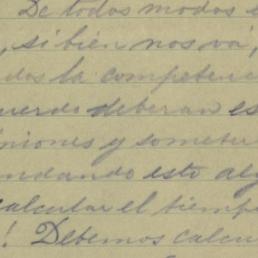 De todos modos e
, si bien nos va,
dos la competenc
uerdo deberan es
iniones y someter
ndando esto al
calcular el tiemp
! Debemos calcu